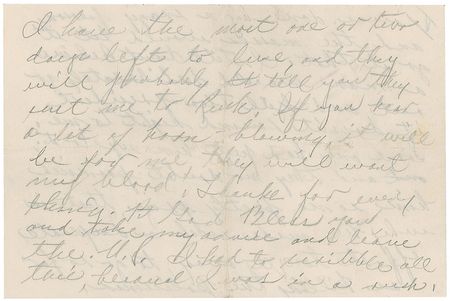 I have the most one or two
days left to live, and they
will probably tell you they
sent me to Rusk. If you hear
a lot of horn-blowing, it will
be for me, they will want
my blood! Thanks for every
thing. God Bless you
and take my advise and leave
the. U.S. I had to scribble all
this, because I was in a rush.